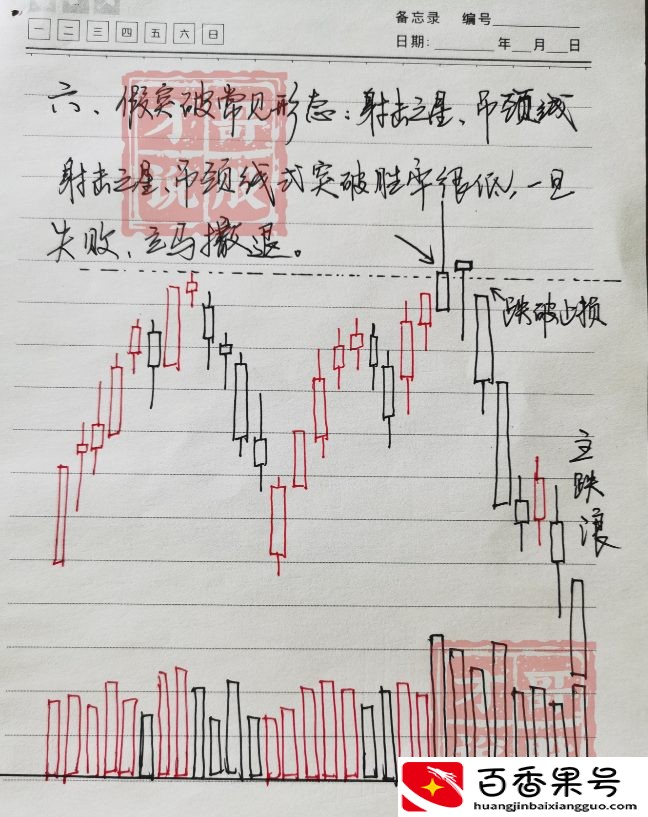 备忘录 编号
一 二 三 四 五 六 日
日期: 年 月 日
六、假突破常见形态:射击之星、吊颈线
射击之星、吊颈线式突破胜率很低,一旦
失败,立马撤退。
跌破止损
主跌浪
百香果号
huangjinbaixiangguo.com